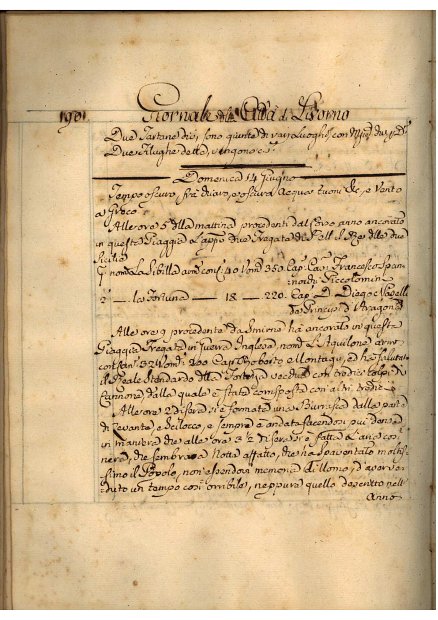 Giornale della Città di Livorno
Due Tartane che sono giunte di vari Luoghi con
Due Filughe dette, vengono
Domenica 14 Giugno
Tempo oscuro, fra chiaro, e oscuro Acqua tuoni &c, e Vento
a Greco
Alle ore 5 della mattina procedenti dal Corso anno ancorato
in questa Spiaggia due Fregate di S. M. il Re delle due
Sicilie
nom. La Sibilla arm. con 40 Uom. 350 Cap. Cav. Francesco
Piccolomini
2 La Fortuna 18 220 Cap. D. Diego
de Principi d'Aragona
Alle ore 9 procedente da Smirne hà ancorato in questa
Spiaggia Fregata in Guerra Inglese nom. L'Aquilone arm.
con Can. 32 Uom. 200 Cap. Roberto Montagu, ed ha salutato
il Reale Stendardo della Fortezza vecchia con tredici colpi di
Cannone dalla quale è stata corrisposta con altri tredici
Alle ore 2 di sera si è formata una Burrasca dalla parte
di Levante, e Scilocco, e sempre è andata facendosi più densa
in maniera che alle ore 3½ di sera si è fatta l'aria così
nera, che sembrava Notte affatto, che ha spaventato moltis-
simo il Popolo, non essendovi memoria di Uomo, d'aver ve-
duto un tempo così orribile, neppure quello descritto nell'
Anno